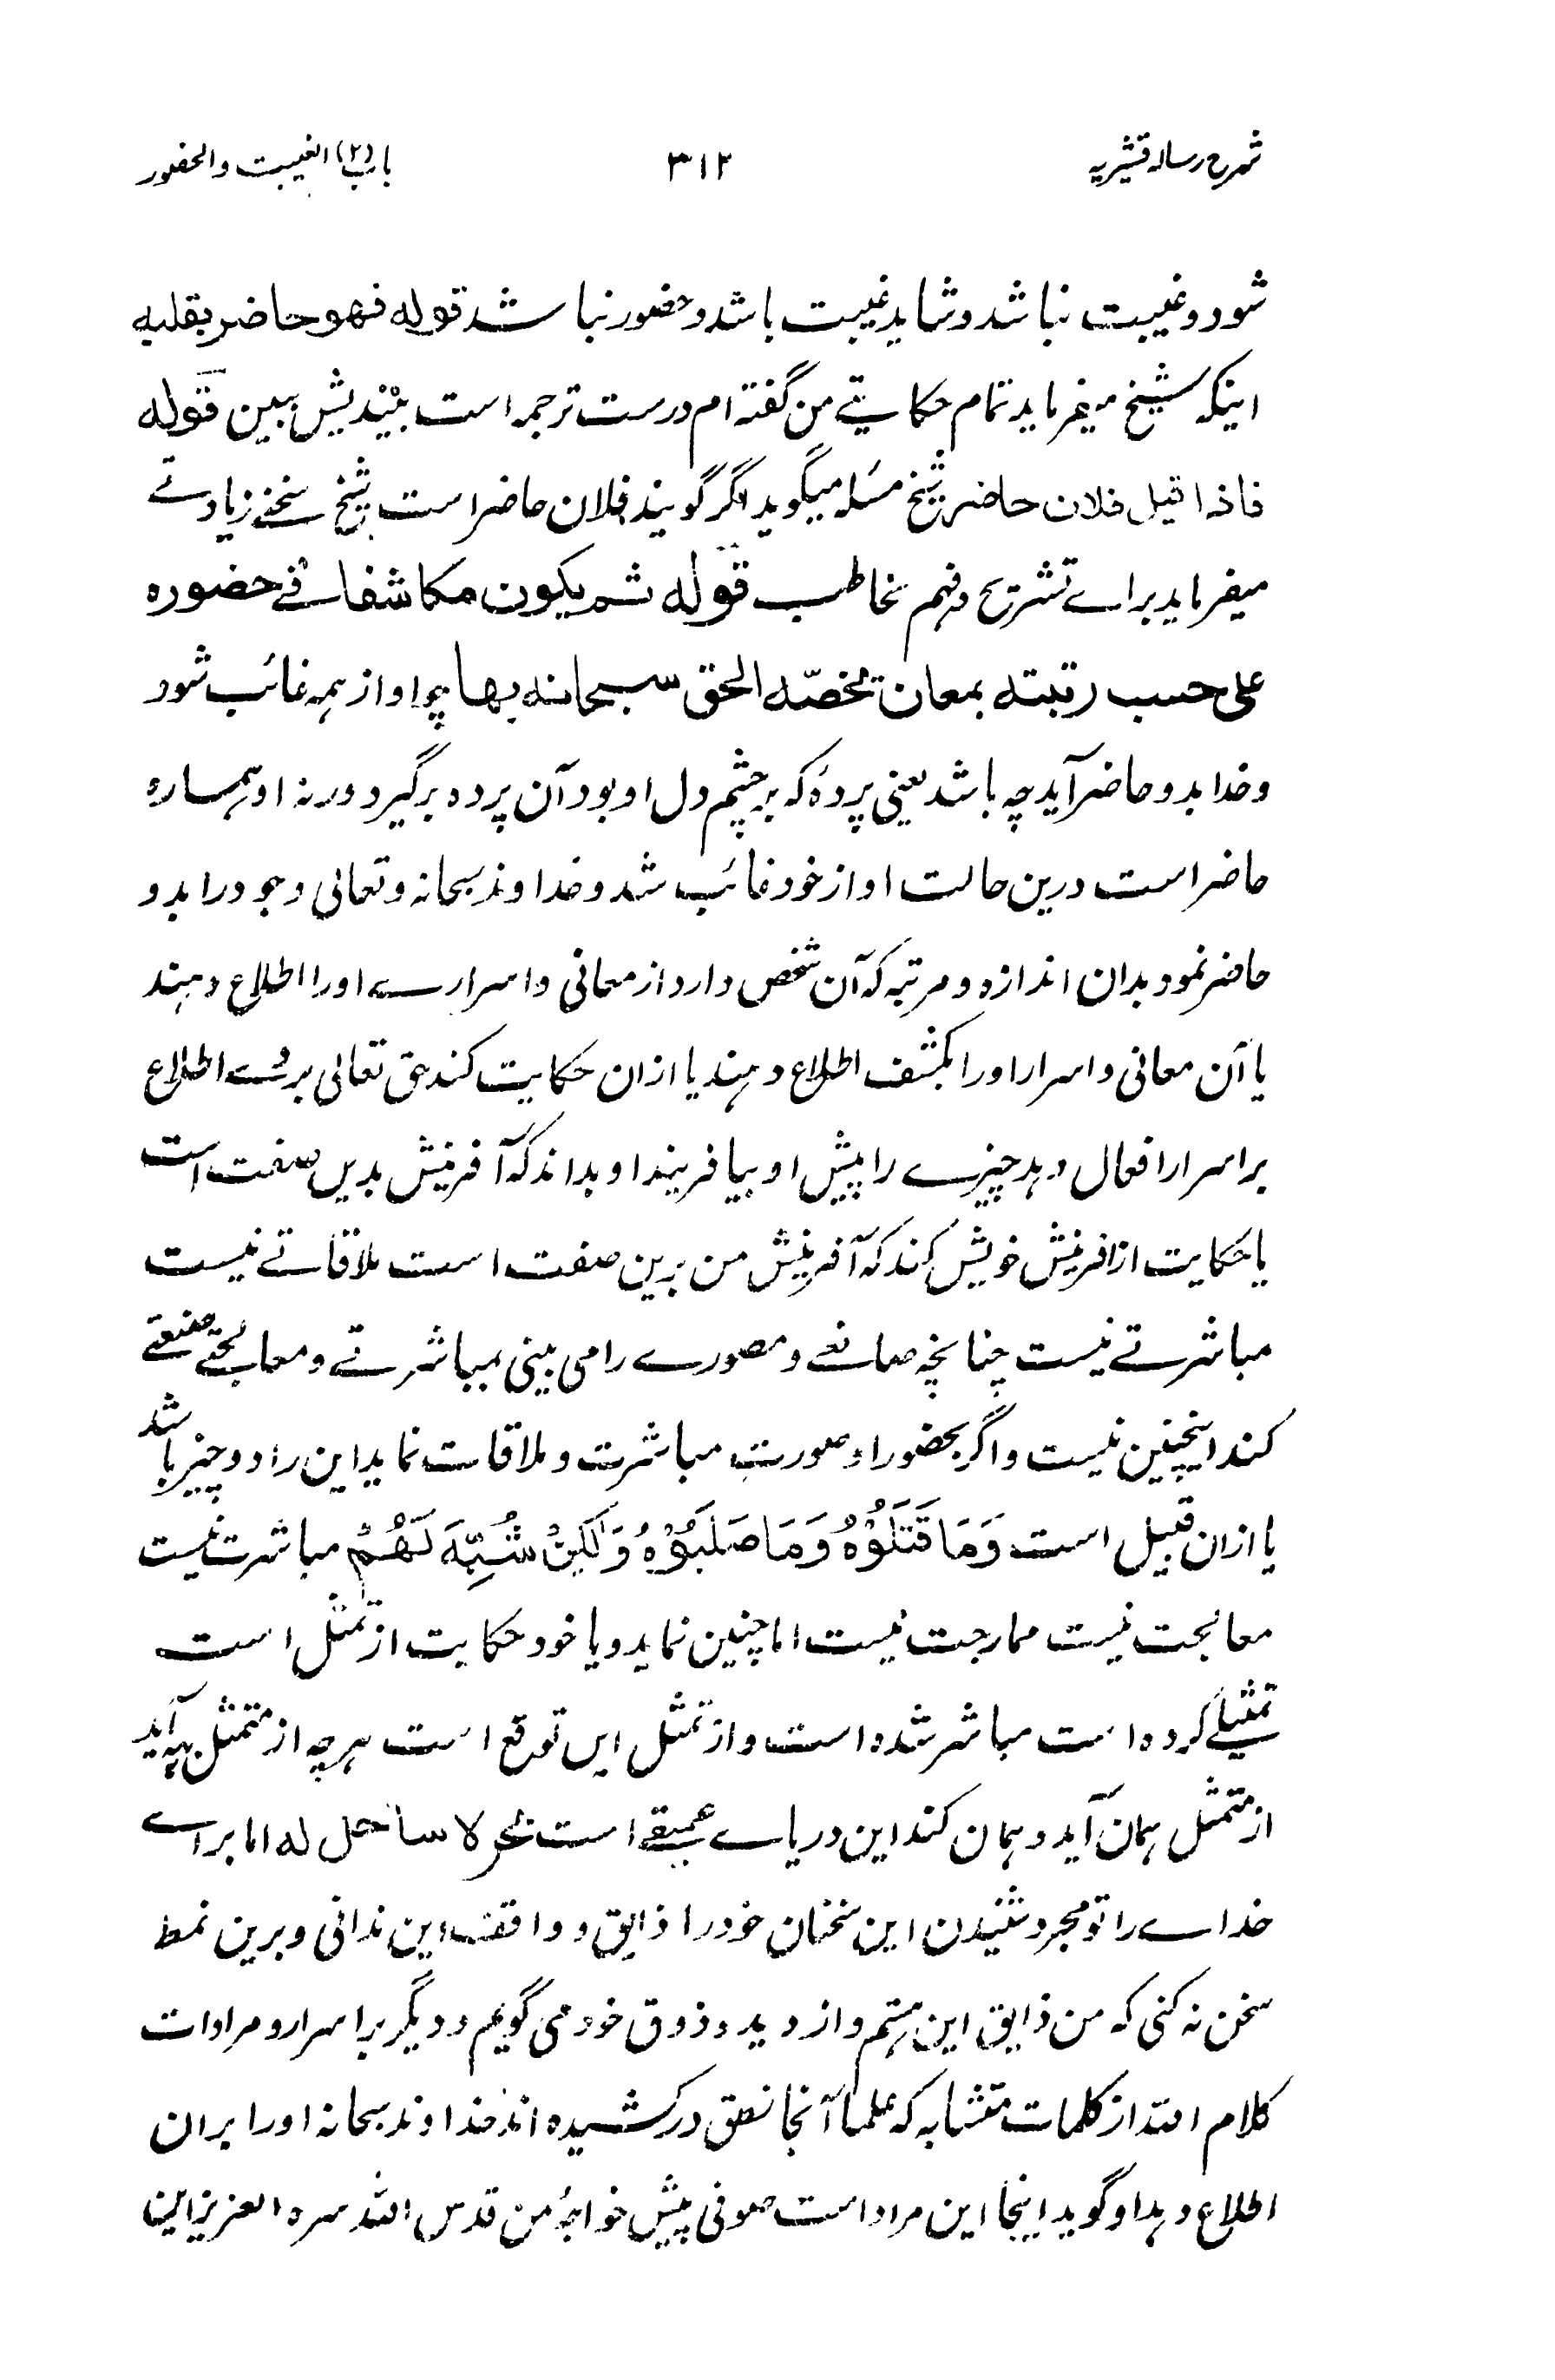 شرح رساله قشیریه ۳۱۲ باب (۲) الغیبت والحضور
شود و غیبت نباشد و شاید غیبت باشد و حضور نباشد قوله فهو حاضر بقلبه
اینکه شیخ میفرماید تمام حکایتے من گفته ام درست ترجمه است بیندیش ببین قوله
فاذا قیل فلان حاضر شیخ مسئله میگوید اگر گویند فلان حاضر است شیخ سخنے زیادتے
میفرماید براے تشریح و فهم مخاطب قوله ثم یکون مکاشفا فے حضوره
علی حسب رتبته بمعان یخصّه الحق سبحانه بها چو او از همه غائب شود
و خدا بدو حاضر آید چه باشد یعنی پردۂ که بر چشم دل او بود آن پرده برگیرد ورنه او همساره
حاضر است درین حالت او از خود غائب شد و خداوند سبحانه و تعالی وجود را بدو
حاضر نمود بدان اندازه و مرتبه که آن شخص دارد از معانی و اسرارے او را اطلاع دهند
یا آن معانی و اسرار او را بکشف اطلاع دهند یا ازان حکایت کند حق تعالی بر وے اطلاع
بر اسرار افعال دهد چیزے را پیش او بیافریند او بداند که آفرینش بدیں صفت است
یا حکایت از افرینش خویش کند که آفرینش من برین صفت است ملاقاتے نیست
مباشرتے نیست چنانچه صانعے و مصورے را می بینی بمباشرتے و معالجتے صنعتے
کند اینچنین نیست و اگر بحضور او صورت مباشرت و ملاقات نماید این را دو چیز باشد
یا ازان قبیل است وَمَا قَتَلُوْهُ وَمَا صَلَبُوْهُ وَلٰکِنْ شُبِّهَ لَهُمْ مباشرت نیست
معالجت نیست ممارجت نیست اما چنین نماید و یا خود حکایت از تمثل است
تمثیلے کرده است مباشر شده است و از تمثل ایں توقع است هرچه از متمثل به آید
از متمثل همان آید و همان کند این دریاے عمیقے است بحر لا ساحل له اما براے
خداے را تو مجرد شنیدن این سخنان خود را ذایق و واقف این ندانی و برین نمط
سخن نه کنی که من ذایق این هستم و از دید و ذوق خود می گویم و دیگر بر اسرار و مرادات
کلام الله از کلمات متشابه که علما آنجا نطق در کشیده اند خداوند سبحانه او را بران
اطلاع دهد او گوید اینجا این مراد است صوفی پیش خواجۂ من قدس الله سره العزیز این